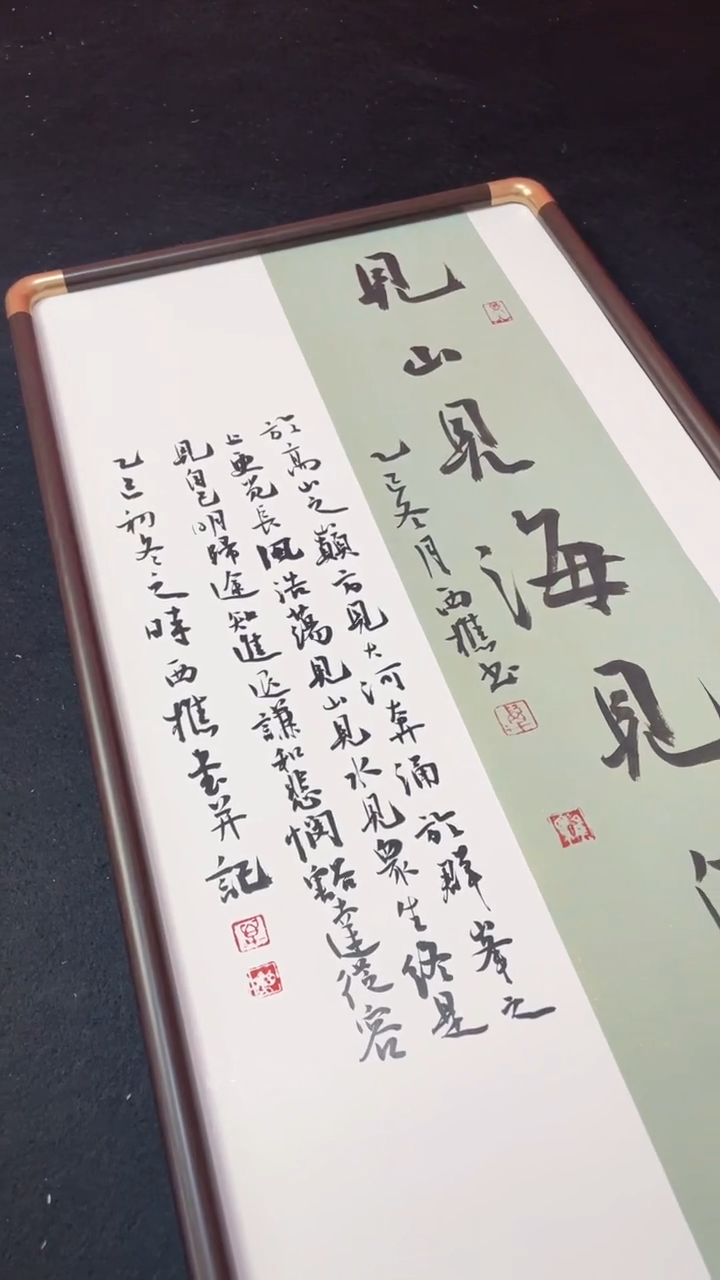 見山見海見
乙巳冬月西樵书
於高山之巔方見大河奔涌於群峯之
上更觉長風浩蕩見山見水見衆生終是
見自己明歸途知進退謙和悲憫豁達從容
乙巳初冬之時西樵書并記